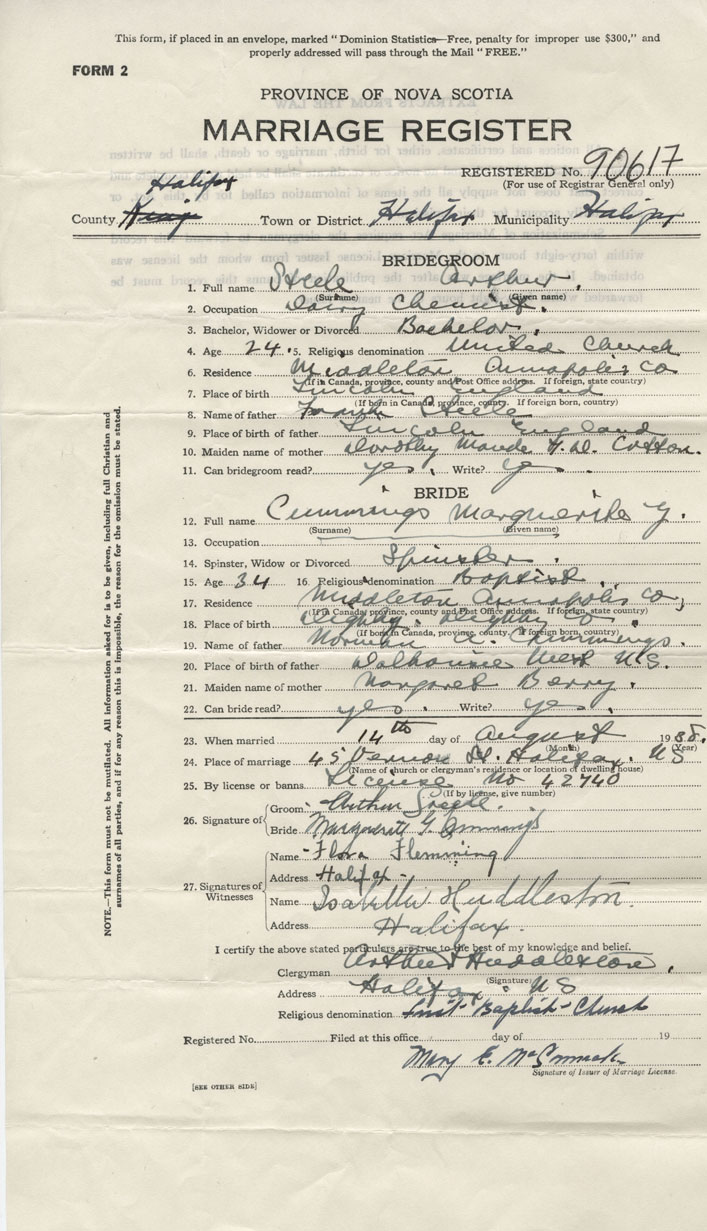 This form, if placed in an envelope, marked "Dominion Statistics—Free, penalty for improper use $300," and
properly addressed will pass through the Mail "FREE."
FORM 2
PROVINCE OF NOVA SCOTIA
MARRIAGE REGISTER
REGISTERED No. 90617
(For use of Registrar General only)
Halifax
County Kings Town or District Halifax Municipality Halifax
BRIDEGROOM
1. Full name Steele Arthur.
(Surname) (Given name)
2. Occupation Dairy Chemist.
3. Bachelor, Widower or Divorced Bachelor.
4. Age 24. 5. Religious denomination United Church
6. Residence Middleton Annapolis Co
(If in Canada, province, county and Post Office address. If foreign, state country)
7. Place of birth Lincoln England
(If born in Canada, province, county. If foreign born, country)
8. Name of father Frank Steele
9. Place of birth of father Lincoln England
10. Maiden name of mother Dorothy Maude H. W. Cotton.
11. Can bridegroom read? yes. Write? yes.
BRIDE
12. Full name Cummings Marguerite G.
(Surname) (Given name)
13. Occupation
14. Spinster, Widow or Divorced Spinster.
15. Age 34 16. Religious denomination Baptist.
17. Residence Middleton Annapolis Co,
(If in Canada, province, county and Post Office address. If foreign, state country)
18. Place of birth Digby. Digby Co.
(If born in Canada, province, county. If foreign born, country)
19. Name of father Norman Cummings.
20. Place of birth of father Dalhousie West N.S.
21. Maiden name of mother Margaret Berry.
22. Can bride read? yes. Write? yes.
23. When married 14th day of August 1938.
(Month) (Year)
24. Place of marriage 45 Vernon St. Halifax. NS
(Name of church or clergyman's residence or location of dwelling house)
25. By license or banns. License No 42740
(If by license, give number)
26. Signature of
Groom Arthur Steele.
Bride Marguerite G. Cummings
27. Signatures of Witnesses
Name Flora Flemming
Address Halifax
Name Isabella Huddleston.
Address Halifax.
I certify the above stated particulars are true to the best of my knowledge and belief.
Clergyman Arthur Huddleston.
(Signature)
Address Halifax NS
Religious denomination Baptist Church
Registered No. Filed at this office day of 19
Mary E. McCormack
Signature of Issuer of Marriage License.
[SEE OTHER SIDE]
NOTE.—This form must not be mutilated. All information asked for is to be given, including full Christian and
surnames of all parties, and if for any reason this is impossible, the reason for the omission must be stated.